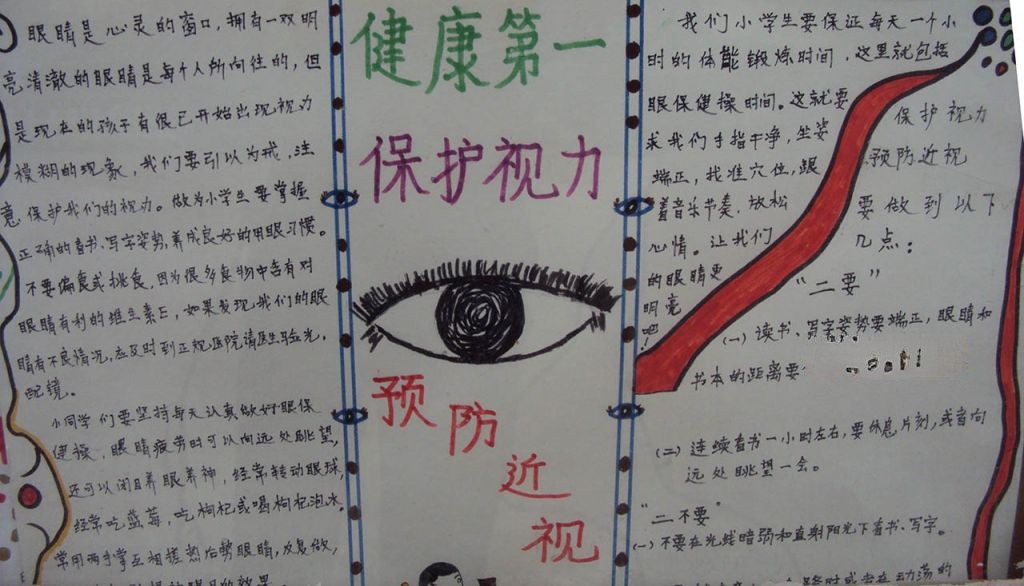 眼睛是心灵的窗口，拥有一双明
亮清澈的眼睛是每个人所向往的，但
是现在的孩子有很已开始出现视力
模糊的现象，我们要引以为戒，注
意保护我们的视力。做为小学生要掌握
正确的看书、写字姿势，养成良好的用眼习惯。
不要偏食或挑食，因为很多食物中含有对
眼睛有利的维生素E，如果发现我们的眼
睛有不良情况，应及时到正规医院请医生验光，
配镜。
小同学们要坚持每天认真做好眼保
健操，眼睛疲劳时可以向远处眺望，
还可以闭目养眼养神，经常转动眼球，
经常吃蓝莓，吃枸杞或喝枸杞泡水。
常用两手掌互相搓热后势眼睛，反复做，
健康第一
保护视力
预
防
近
视
我们小学生要保证每天一个小
时的体能锻炼时间，这里就包括
眼保健操时间。这就要
求我们手指干净，坐姿
端正，找准穴位，跟
着音乐节奏，放松
心情。让我们
的眼睛更
明亮
吧！
保护视力
预防近视
要做到以下
几点：
“二要”
（一）读书、写字姿势要端正，眼睛和
书本的距离要
（二）连续看书一小时左右，要休息片刻，或者向
远处眺望一会。
“二不要”
（一）不要在光线暗弱和直射阳光下看书、写字。